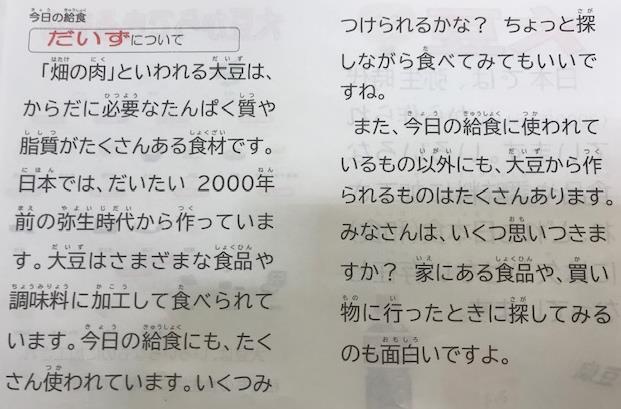 今日の給食
だいずについて
「畑の肉」といわれる大豆は、
からだに必要なたんぱく質や
脂質がたくさんある食材です。
日本では、だいたい 2000年
前の弥生時代から作っていま
す。大豆はさまざまな食品や
調味料に加工して食べられて
います。今日の給食にも、たく
さん使われています。いくつみ
つけられるかな？ ちょっと探
しながら食べてみてもいいで
すね。
また、今日の給食に使われて
いるもの以外にも、大豆から作
られるものはたくさんあります。
みなさんは、いくつ思いつきま
すか？ 家にある食品や、買い
物に行ったときに探してみる
のも面白いですよ。